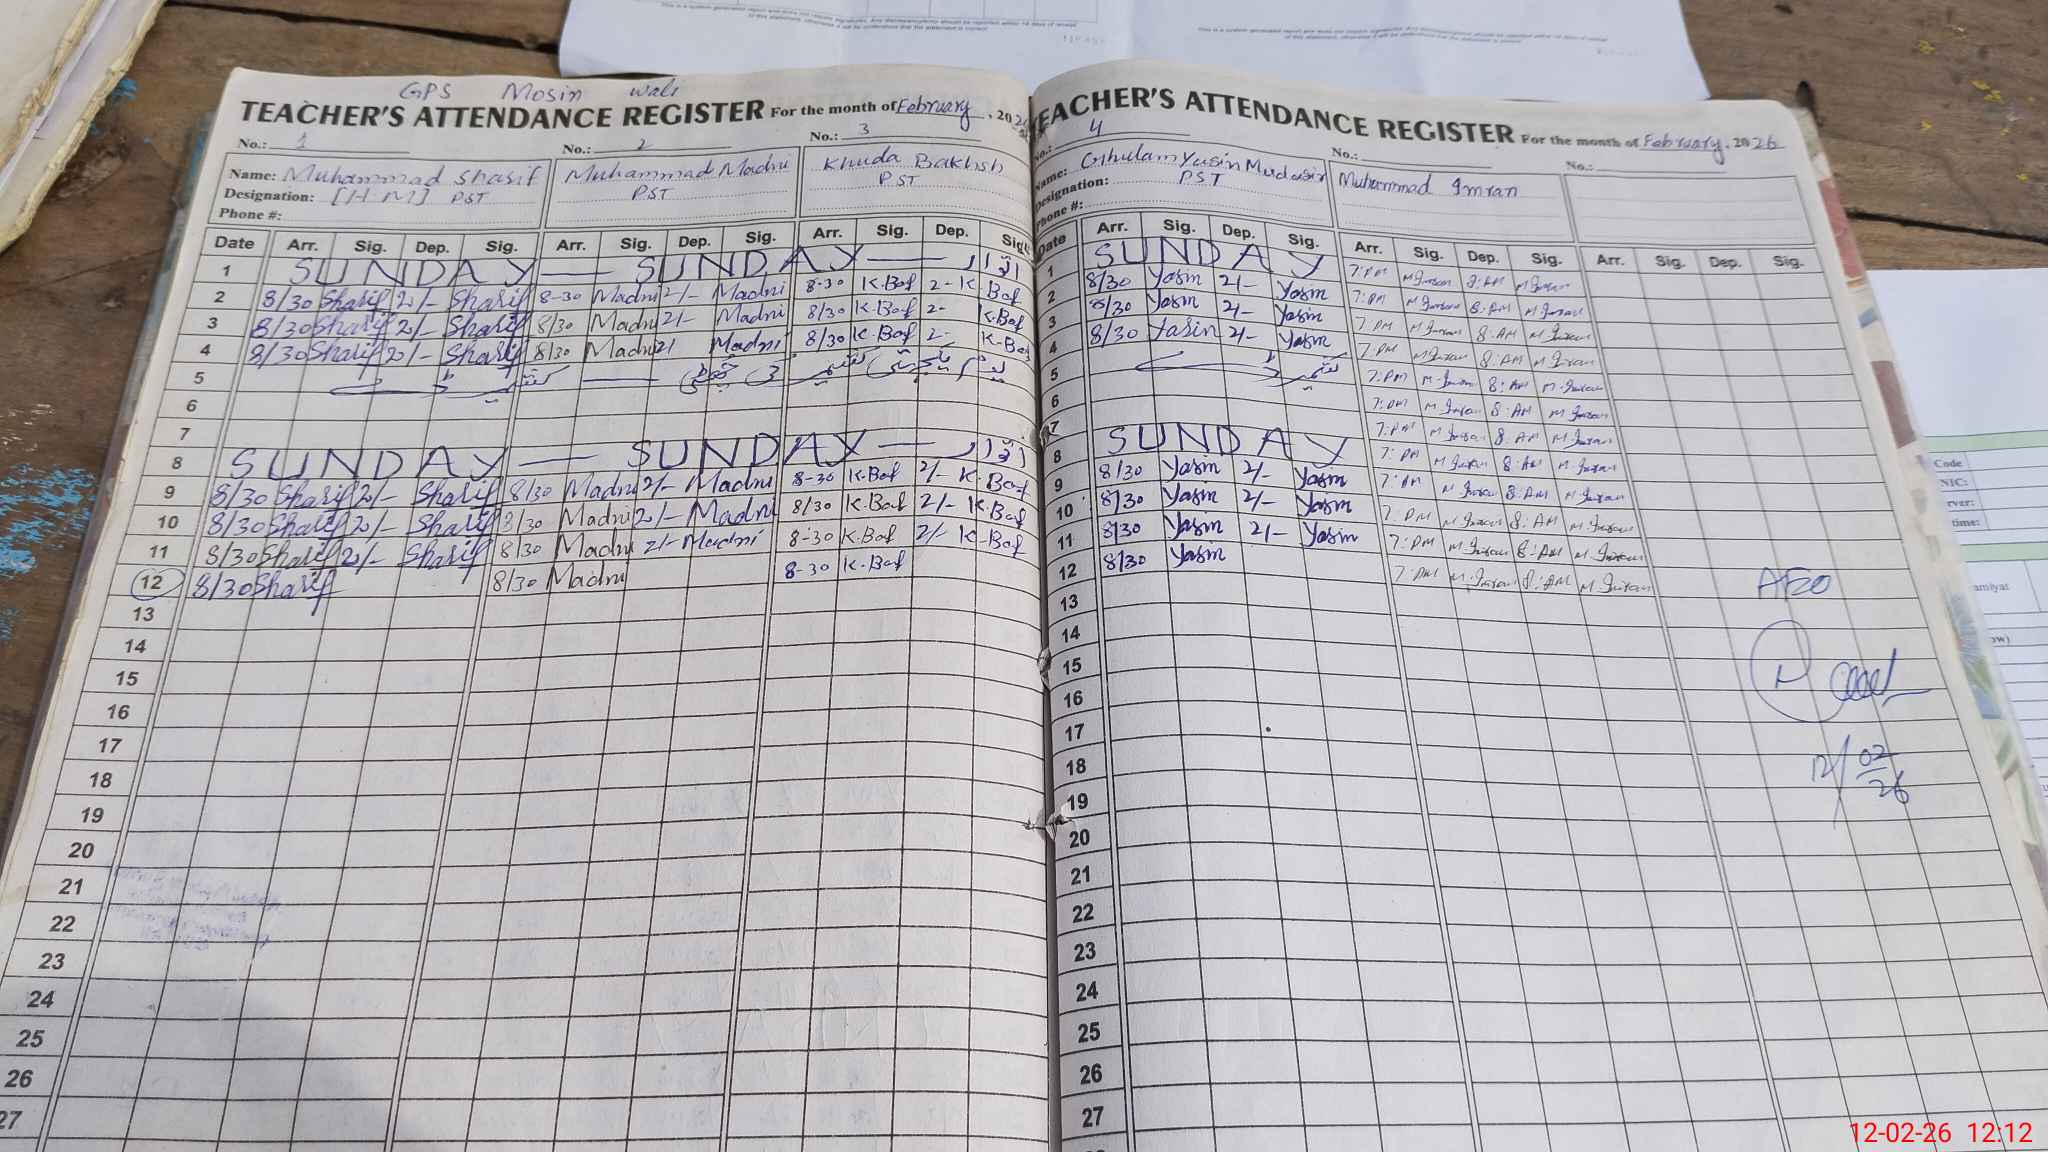 This is a system generated report and does not require signatures. Any discrepancy
GPS Mosin wali
TEACHER'S ATTENDANCE REGISTER For the month of February, 2026
No.: 1 No.: 2 No.: 3
Name: Muhammad Sharif Muhammad Madni Khuda Bakhsh
Designation: [H M] PST PST PST
Phone #:
Date Arr. Sig. Dep. Sig. Arr. Sig. Dep. Sig. Arr. Sig. Dep. Sig.
1 SUNDAY — SUNDAY — اتوار
2 8/30 Sharif 2/- Sharif 8-30 Madni 2/- Madni 8-30 K.Baf 2- K.Baf
3 8/30 Sharif 2/- Sharif 8/30 Madni 2/- Madni 8/30 K.Baf 2- K.Baf
4 8/30 Sharif 2/- Sharif 8/30 Madni 2/ Madni 8/30 K.Baf 2- K-Baf
5 یوم یکجہتی کشمیر کی چھٹی — کشمیر ڈے
6
7
8 SUNDAY — SUNDAY — اتوار
9 8/30 Sharif 2/- Sharif 8/30 Madni 2/- Madni 8-30 K.Baf 2/- K-Baf
10 8/30 Sharif 2/- Sharif 8/30 Madni 2/- Madni 8/30 K.Baf 2/- K-Baf
11 8/30 Sharif 2/- Sharif 8/30 Madni 2/- Madni 8-30 K.Baf 2/- K-Baf
12 8/30 Sharif 8/30 Madni 8-30 K.Baf
13
14
15
16
17
18
19
20
21
22
23
24
25
26
27
TEACHER'S ATTENDANCE REGISTER For the month of February, 2026
No.: 4 No.: No.:
Name: Ghulam Yasin Mudasir Muhammad Imran
Designation: PST
Phone #:
Date Arr. Sig. Dep. Sig. Arr. Sig. Dep. Sig. Arr. Sig. Dep. Sig.
1 SUNDAY 7:PM M Imran 8:AM M Imran
2 8/30 Yasin 2/- Yasin 7:PM M Imran 8:AM M Imran
3 8/30 Yasin 2/- Yasin 7:PM M Imran 8:AM M Imran
4 8/30 Yasin 2/- Yasin 7:PM M Imran 8:AM M Imran
5 کشمیر ڈے 7:PM M.Imran 8:AM M.Imran
6 7:PM M Imran 8:AM M Imran
7 7:PM M Imran 8:AM M Imran
8 SUNDAY 7:PM M Imran 8:AM M Imran
9 8/30 Yasin 2/- Yasin 7:PM M Imran 8:AM M Imran
10 8/30 Yasin 2/- Yasin 7:PM M Imran 8:AM M Imran
11 8/30 Yasin 2/- Yasin 7:PM M Imran 8:AM M Imran
12 8/30 Yasin 7:PM M.Imran 8:AM M.Imran
13
14
15
16
17
18
19
20
21
22
23
24
25
26
27
AEO
12/02/26
Code
NIC:
rver:
time:
amiyat
ow)
12-02-26 12:12